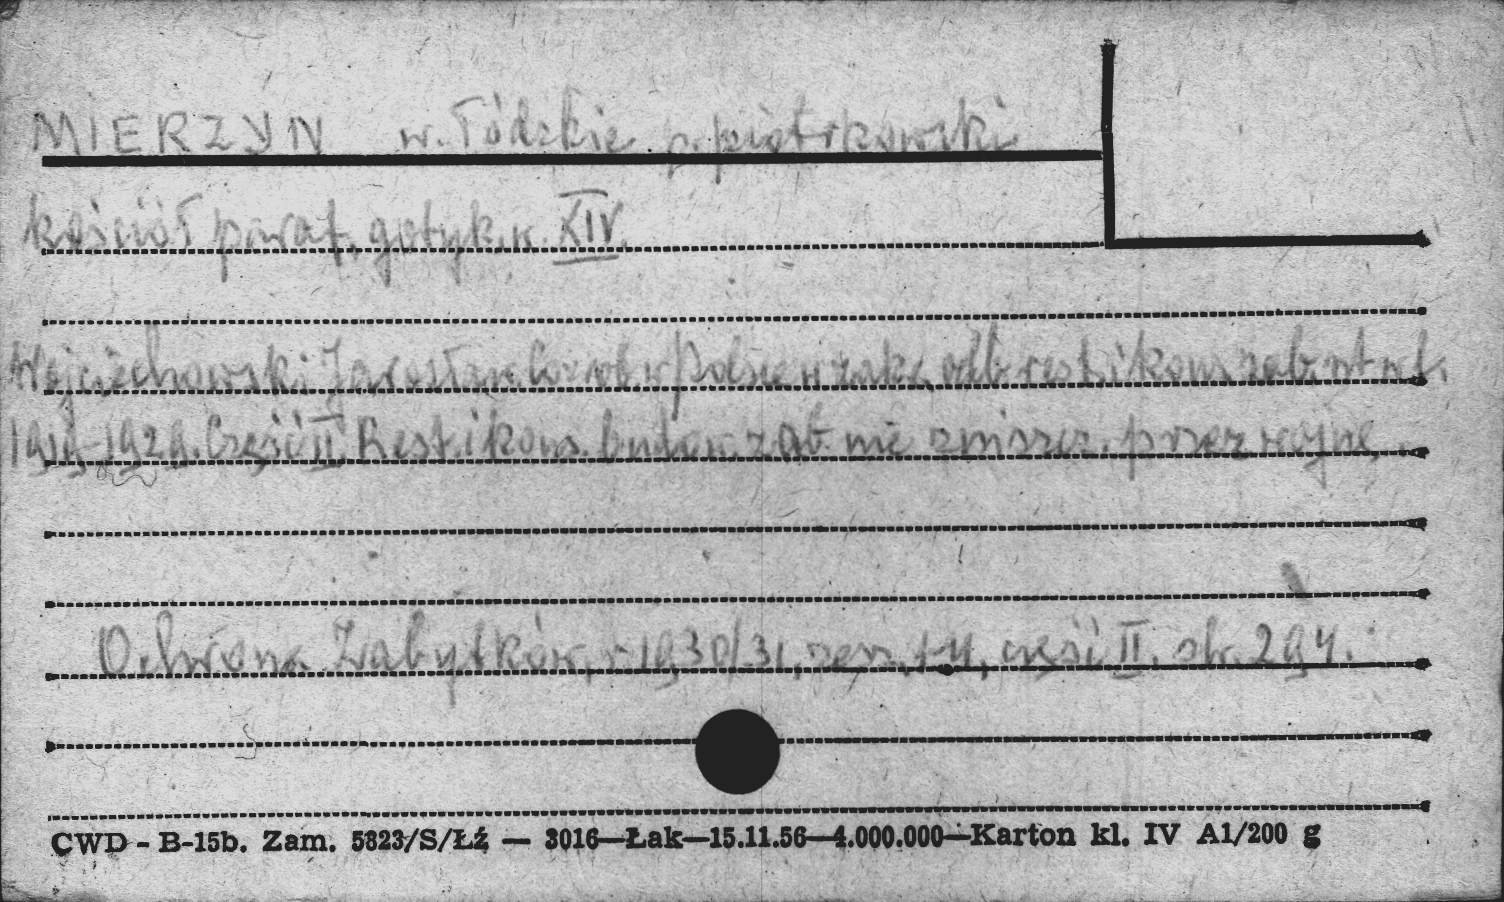 MIERZYN w. Łódzkie p. piotrkowski
kościół paraf. gotyk. w. XIV.
Wojciechowski Jarosław. w Polsce w zakr. odb. rest. i kons. zab. nt. w l.
-1929. Część II. Rest. i kons. budow. zab. nie zniszcz. przez wojnę.
Ochrona Zabytków, r 1930/31, część II. str. 294.
CWD - B-15b. Zam. 5323/S/Łź — 3016—Łak—15.11.56—4.000.000—Karton kl. IV A1/200 g